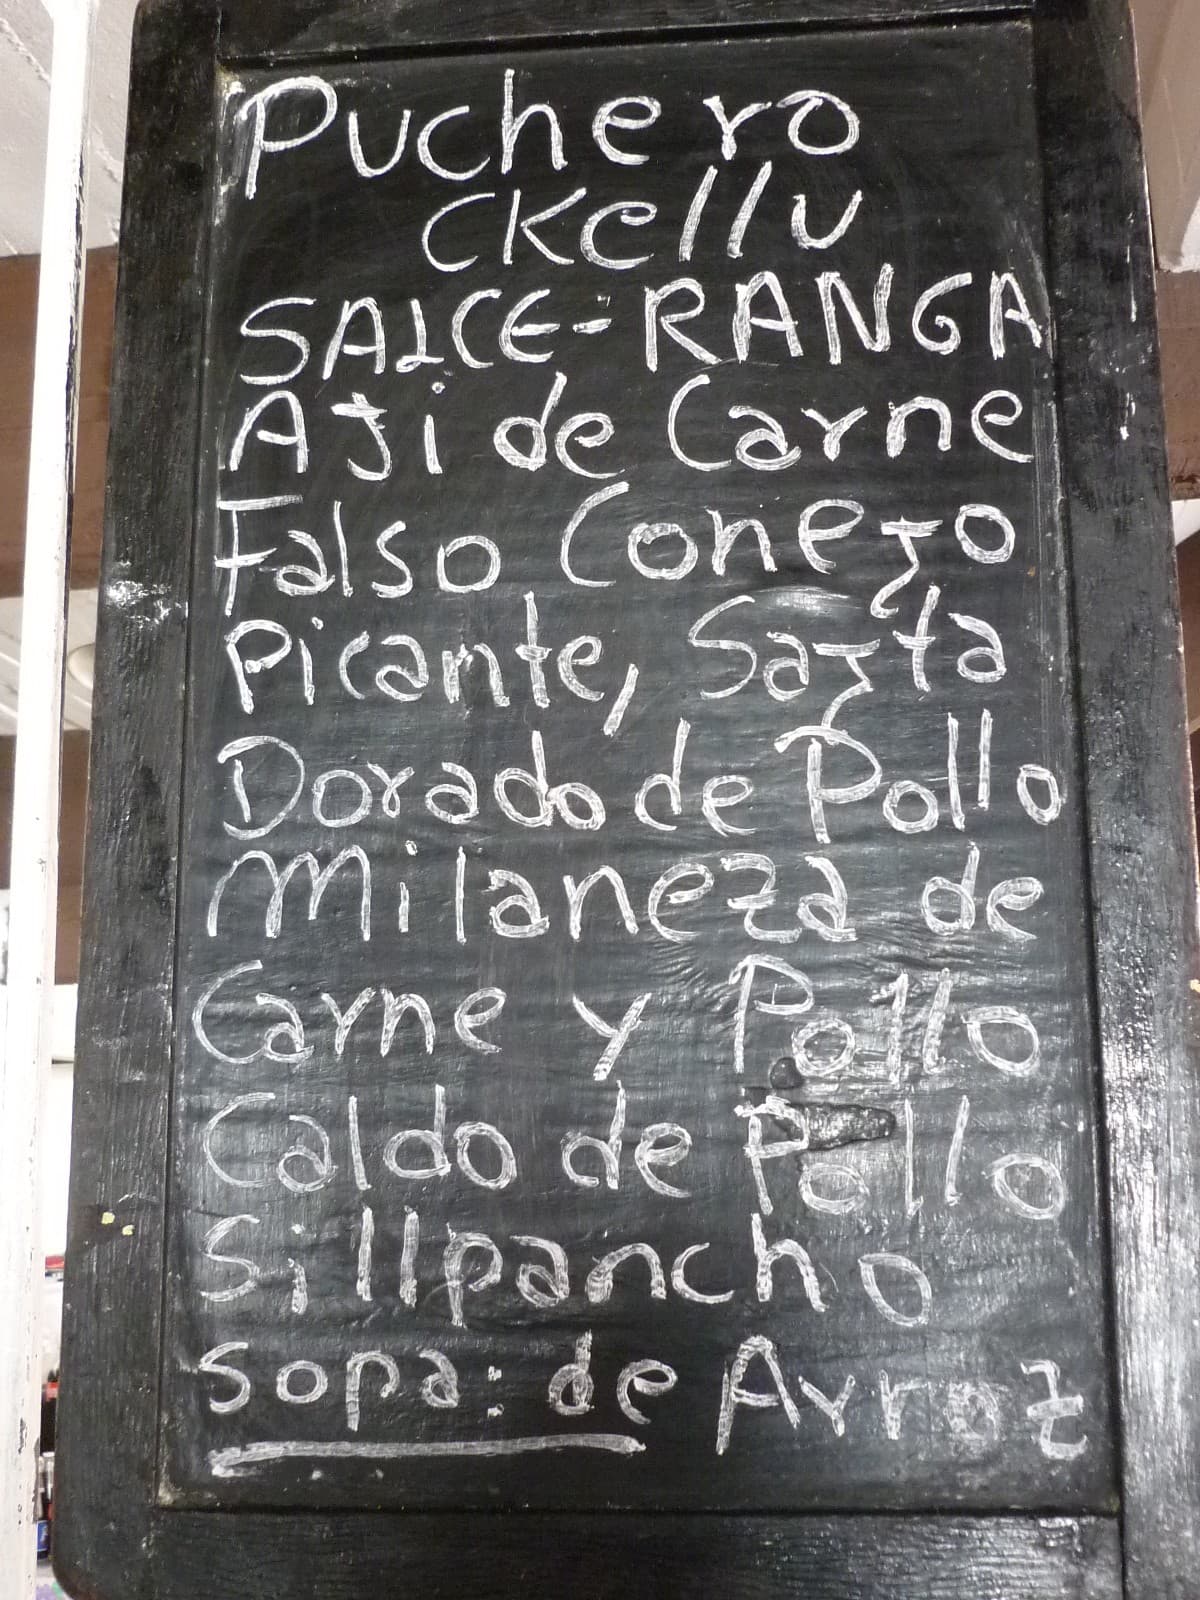 Puchero
CKellu
SAICE-RANGA
AJi de Carne
Falso Conejo
Picante, Sajta
Dorado de Pollo
Milaneza de
Carne y Pollo
Caldo de Pollo
Sillpancho
Sopa: de Arroz